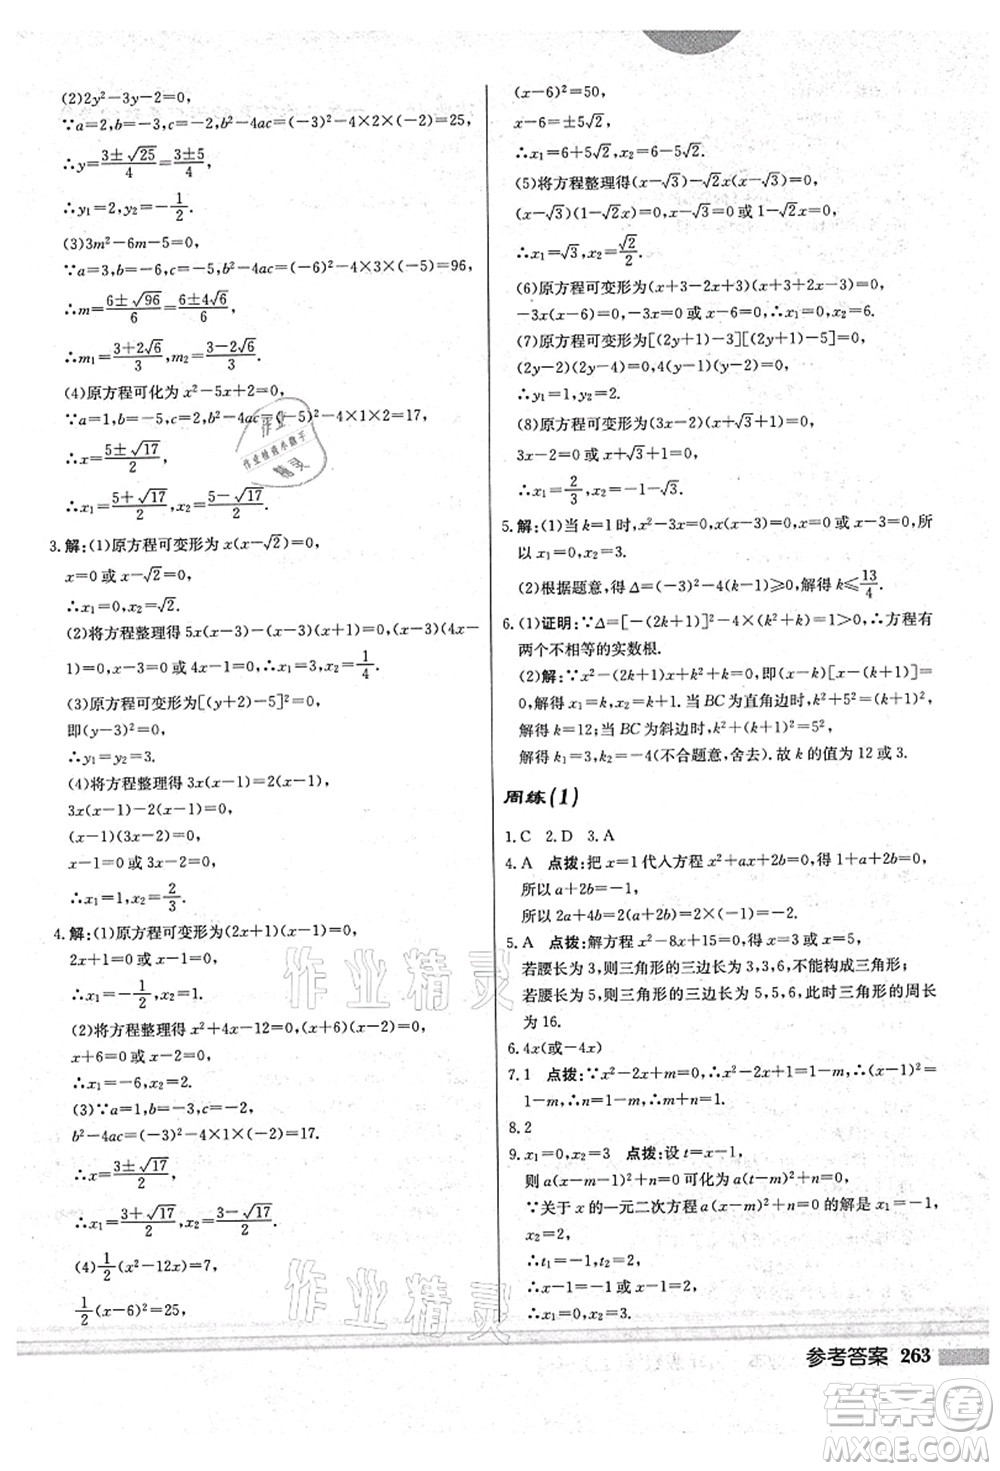 (2)2y²-3y-2=0,
∵a=2,b=-3,c=-2,b²-4ac=(-3)²-4×2×(-2)=25,
∴y=(3±√25)/4=(3±5)/4,
∴y₁=2,y₂=-1/2.
(3)3m²-6m-5=0,
∵a=3,b=-6,c=-5,b²-4ac=(-6)²-4×3×(-5)=96,
∴m=(6±√96)/6=(6±4√6)/6,
∴m₁=(3+2√6)/3,m₂=(3-2√6)/3.
(4)原方程可化为 x²-5x+2=0,
∵a=1,b=-5,c=2,b²-4ac=(-5)²-4×1×2=17,
∴x=(5±√17)/2,
∴x₁=(5+√17)/2,x₂=(5-√17)/2.
3.解:(1)原方程可变形为 x(x-√2)=0,
x=0或 x-√2=0,
∴x₁=0,x₂=√2.
(2)将方程整理得 5x(x-3)-(x-3)(x+1)=0,
(x-3)(4x-1)=0,
x-3=0 或 4x-1=0,∴x₁=3,x₂=1/4.
(3)原方程可变形为[(y+2)-5]²=0,
即(y-3)²=0,
∴y₁=y₂=3.
(4)将方程整理得 3x(x-1)=2(x-1),
3x(x-1)-2(x-1)=0,
(x-1)(3x-2)=0,
x-1=0或3x-2=0,
∴x₁=1,x₂=2/3.
4.解:(1)原方程可变形为(2x+1)(2x+1)=0,
2x+1=0,
∴x₁=x₂=-1/2.
(2)将方程整理得 x²+4x-12=0,(x+6)(x-2)=0,
x+6=0 或 x-2=0,
∴x₁=-6,x₂=2.
(3)∵a=1,b=-3,c=-2,
b²-4ac=(-3)²-4×1×(-2)=17.
∴x=(3±√17)/2,
∴x₁=(3+√17)/2,x₂=(3-√17)/2.
(4)1/2(x²-12x)=7,
1/2(x-6)²=25,
(x-6)²=50,
x-6=±5√2,
∴x₁=6+5√2,x₂=6-5√2.
(5)将方程整理得(x-√3)-√2x(x-√3)=0,
(x-√3)(1-√2x)=0,
∴x₁=√3,x₂=√2/2.
(6)原方程可变形为(x+3-2x+3)(x+3+2x-3)=0,
-3x(x-6)=0,x=0或 x-6=0,∴x₁=0,x₂=6.
(7)原方程可变形为[(2y+1)-3][(2y+1)-1]=0,
(2y-2)(2y)=0,4y(y-1)=0,
∴y₁=1,y₂=0.
(8)原方程可变形为(3x-2)(x+√3+1)=0,
3x-2=0 或 x+√3+1=0,
∴x₁=2/3,x₂=-1-√3.
5.解:(1)当 k=1时,x²-3x=0,x=0或 x-3=0,所
以 x₁=0,x₂=3.
(2)根据题意,得 Δ=(-3)²-4(k-1)≥0,解得 k≤13/4.
6.(1)证明:∵Δ=[-(2k+1)]²-4(k²+k)=1>0,∴方程有
两个不相等的实数根.
(2)解:∵x²-(2k+1)x+k²+k=0,即(x-k)[x-(k+1)]=
0,解得 x₁=k,x₂=k+1. 当 BC为直角边时,k²+5²=(k+1)²,
解得 k=12;当 BC为斜边时,k²+(k+1)²=5²,
解得 k₁=3,k₂=-4(不合题意,舍去).故 k 的值为 12 或 3.
周练(1)
1.C 2.D 3.A
4.A 点拨:把 x=1代入方程 x²+ax+2b=0,得1+a+2b=0,
所以 a+2b=-1,
所以2a+4b=2(a+2b)=2×(-1)=-2.
5.A 点拨:解方程 x²-8x+15=0,得 x=3或 x=5,
若腰长为 3,则三角形的三边长为3,3,6,不能构成三角形;
若腰长为 5,则三角形的三边长为 5,5,6,此时三角形的周长
为 16.
6.4x(或-4x)
7.1 点拨:∵x²-2x+m=0,∴x²-2x=-m,∴x²-2x+1=
1-m,∴(x-1)²=1-m,∴1-m=0,∴m=1.
8.2
9.x₁=0,x₂=3 点拨:设 t=x-1,
则 a(x-m-1)²+n=0可化为 a(t-m)²+n=0,
∵关于 x 的一元二次方程 a(x-m)²+n=0的解是 x₁=-1,
x₂=2,
∴t₁=-1,t₂=2,
∴x-1=-1或 x-1=2,
∴x₁=0,x₂=3.
参考答案 263
作业精灵
作业检查小助手
作业精灵
作业精灵
答案圈
MXQE.COM